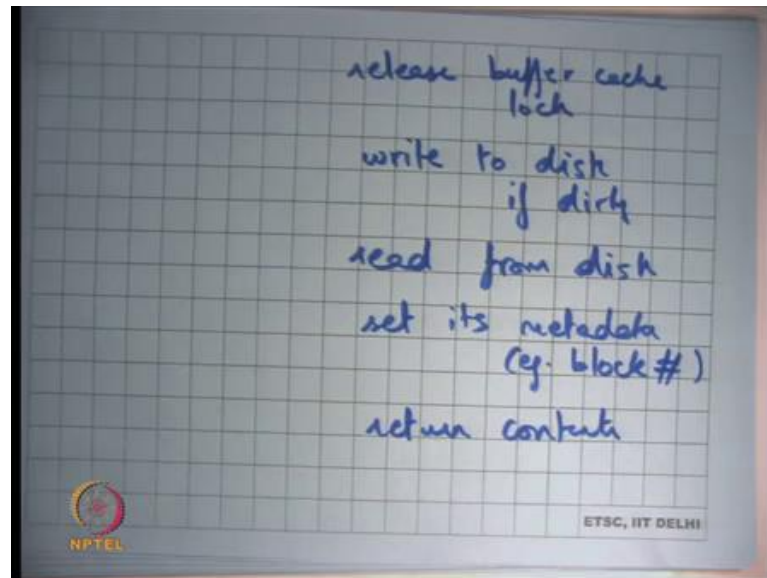 release buffer cache
lock
write to disk
if dirty
read from disk
set its metadata
(eg. block #)
return contents
ETSC, IIT DELHI
NPTEL